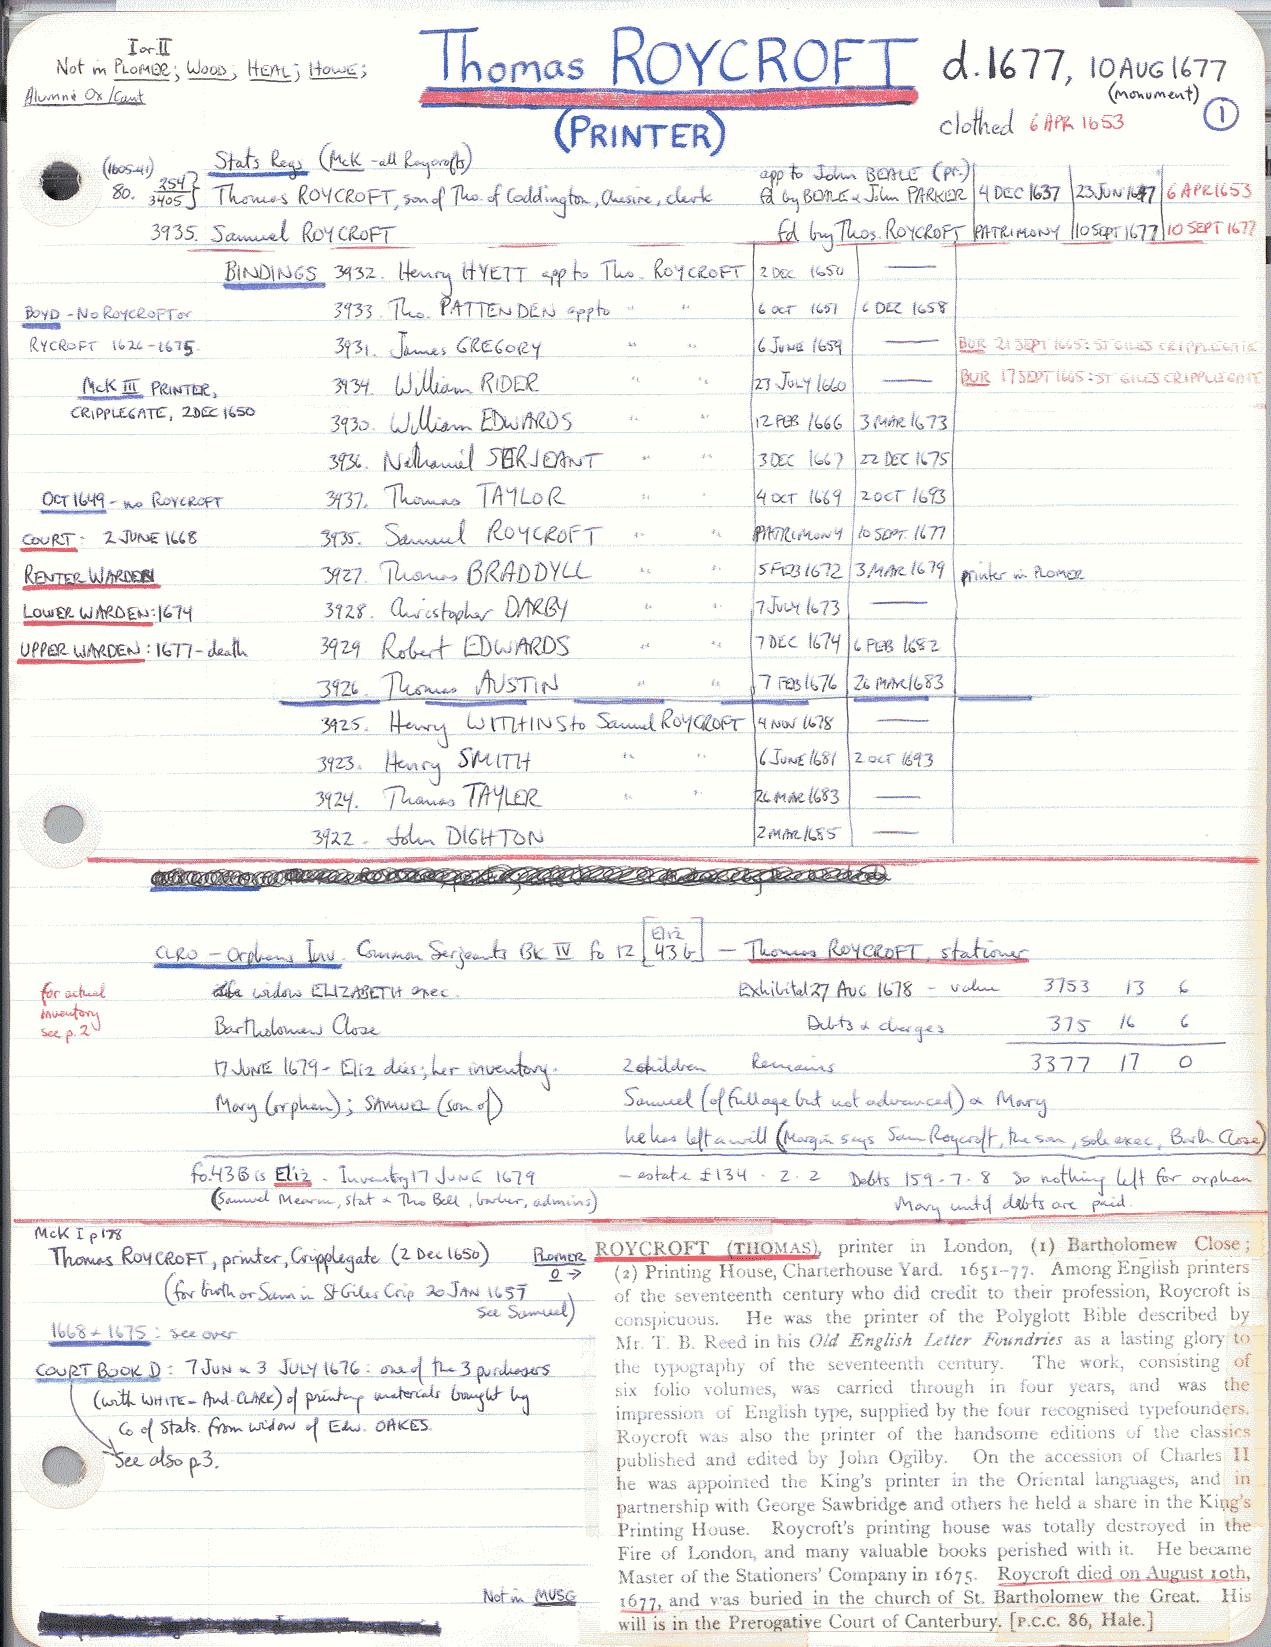 I or II
Not in PLOMER; WOOD; HEAL; HOWE;
Alumni Ox/Cant
Thomas ROYCROFT d.1677, 10 AUG 1677
(monument)
(PRINTER)
clothed 6 APR 1653
1
(1605-41) Stats Regs (McK - all Roycrofts)
80. 254/3405 } Thomas ROYCROFT, son of Tho. of Coddington, Chesire, clerk
app to John BEALE (pr.)
fd by BEALE & John PARKER 4 DEC 1637 23 JUN 1647 6 APR 1653
3935. Samuel ROYCROFT fd by Thos. ROYCROFT PATRIMONY 10 SEPT 1677 10 SEPT 1677
BINDINGS 3932. Henry HYETT app to Tho. ROYCROFT 2 DEC 1650 —
BOYD - NO ROYCROFT or 3933. Tho. PATTENDEN app to " " 6 OCT 1651 6 DEC 1658
RYCROFT 1626-1675. 3931. James GREGORY " " 6 JUNE 1659 — BUR 21 SEPT 1665: ST GILES CRIPPLEGATE
McK III PRINTER, 3934. William RIDER " " 23 JULY 1660 — BUR 17 SEPT 1665: ST GILES CRIPPLEGATE
CRIPPLEGATE, 2 DEC 1650
3930. William EDWARDS " " 12 FEB 1666 3 MAR 1673
3936. Nathaniel SERJEANT " " 3 DEC 1667 22 DEC 1675
OCT 1649 - no ROYCROFT 3937. Thomas TAYLOR " " 4 OCT 1669 2 OCT 1693
COURT: 2 JUNE 1668 3935. Samuel ROYCROFT " " PATRIMONY 10 SEPT. 1677
RENTER WARDEN 3927. Thomas BRADDYLL " " 5 FEB 1672 3 MAR 1679 printer in PLOMER
LOWER WARDEN: 1674 3928. Christopher DARBY " " 7 JULY 1673 —
UPPER WARDEN: 1677 - death 3929 Robert EDWARDS " " 7 DEC 1674 6 FEB 1682
3926. Thomas AUSTIN " " 7 FEB 1676 26 MAR 1683
3925. Henry WITHINS to Samuel ROYCROFT 4 NOV 1678 —
3923. Henry SMITH " " 6 JUNE 1681 2 OCT 1693
3924. Thomas TAYLER " " 26 MAR 1683 —
3922. John DIGHTON 2 MAR 1685 —
CLRO - Orphans Inv. Common Serjeants BK IV fo 12 [Eliz 43 b] - Thomas ROYCROFT, stationer
for actual inventory see p.2
widow ELIZABETH exec. Exhibited 27 AUG 1678 - value 3753 13 6
Bartholomew Close Debts & charges 375 16 6
17 JUNE 1679 - Eliz dies; her inventory. 2 children Remains 3377 17 0
Mary (orphan); SAMUEL (son of) Samuel (of full age but not advanced) & Mary
he has left a will (Margin says Sam Roycroft, the son, sole exec, Barth Close)
fo. 43B is Eliz. Inventory 17 JUNE 1679 - estate £134 . 2 . 2 Debts 159 . 7 . 8 So nothing left for orphan
(Samuel Mearne, stat & Tho Bell, barber, admins) Mary until debts are paid.
McK I p 178
Thomas ROYCROFT, printer, Cripplegate (2 Dec 1650)
(for birth of Sam in St Giles Crip 20 JAN 1657
see Samuel)
1668 & 1675: see over
COURT BOOK D: 7 JUN & 3 JULY 1676: one of the 3 purchasers
(with WHITE & And. CLARK) of printing materials bought by
Co of Stats. from widow of Edw. OAKES.
See also p3.
PLOMER
0 →
ROYCROFT (THOMAS), printer in London, (1) Bartholomew Close;
(2) Printing House, Charterhouse Yard. 1651-77. Among English printers
of the seventeenth century who did credit to their profession, Roycroft is
conspicuous. He was the printer of the Polyglott Bible described by
Mr. T. B. Reed in his Old English Letter Foundries as a lasting glory to
the typography of the seventeenth century. The work, consisting of
six folio volumes, was carried through in four years, and was the
impression of English type, supplied by the four recognised typefounders.
Roycroft was also the printer of the handsome editions of the classics
published and edited by John Ogilby. On the accession of Charles II
he was appointed the King's printer in the Oriental languages, and in
partnership with George Sawbridge and others he held a share in the King's
Printing House. Roycroft's printing house was totally destroyed in the
Fire of London, and many valuable books perished with it. He became
Master of the Stationers' Company in 1675. Roycroft died on August 10th,
1677, and was buried in the church of St. Bartholomew the Great. His
will is in the Prerogative Court of Canterbury. [P.C.C. 86, Hale.]
Not in MUSG